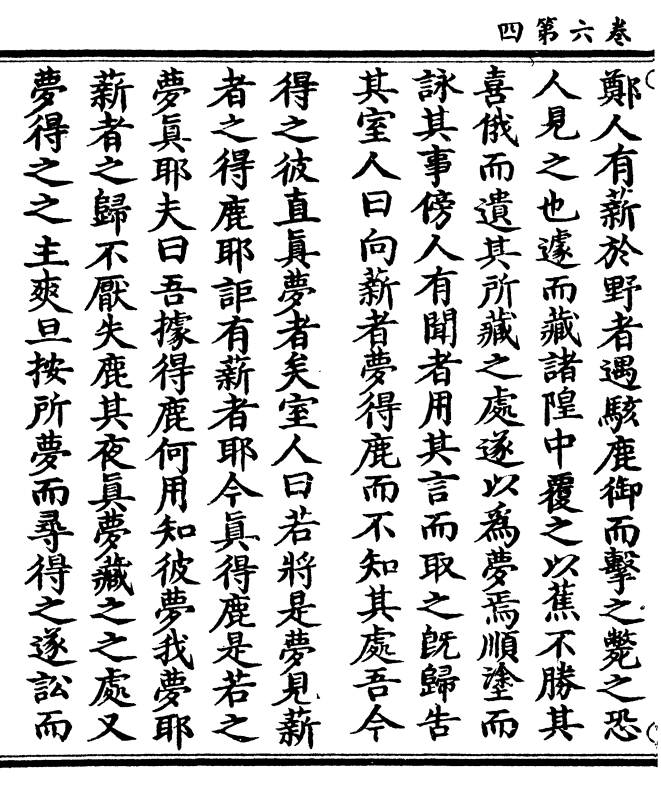 卷六第四
鄭人有薪於野者遇駭鹿御而擊之斃之恐
人見之也遽而藏諸隍中覆之以蕉不勝其
喜俄而遺其所藏之處遂以爲夢焉順塗而
詠其事傍人有聞者用其言而取之旣歸告
其室人曰向薪者夢得鹿而不知其處吾今
得之彼直眞夢者矣室人曰若將是夢見薪
者之得鹿耶詎有薪者耶今眞得鹿是若之
夢眞耶夫曰吾據得鹿何用知彼夢我夢耶
薪者之歸不厭失鹿其夜眞夢藏之之處又
夢得之之主爽旦按所夢而尋得之遂訟而